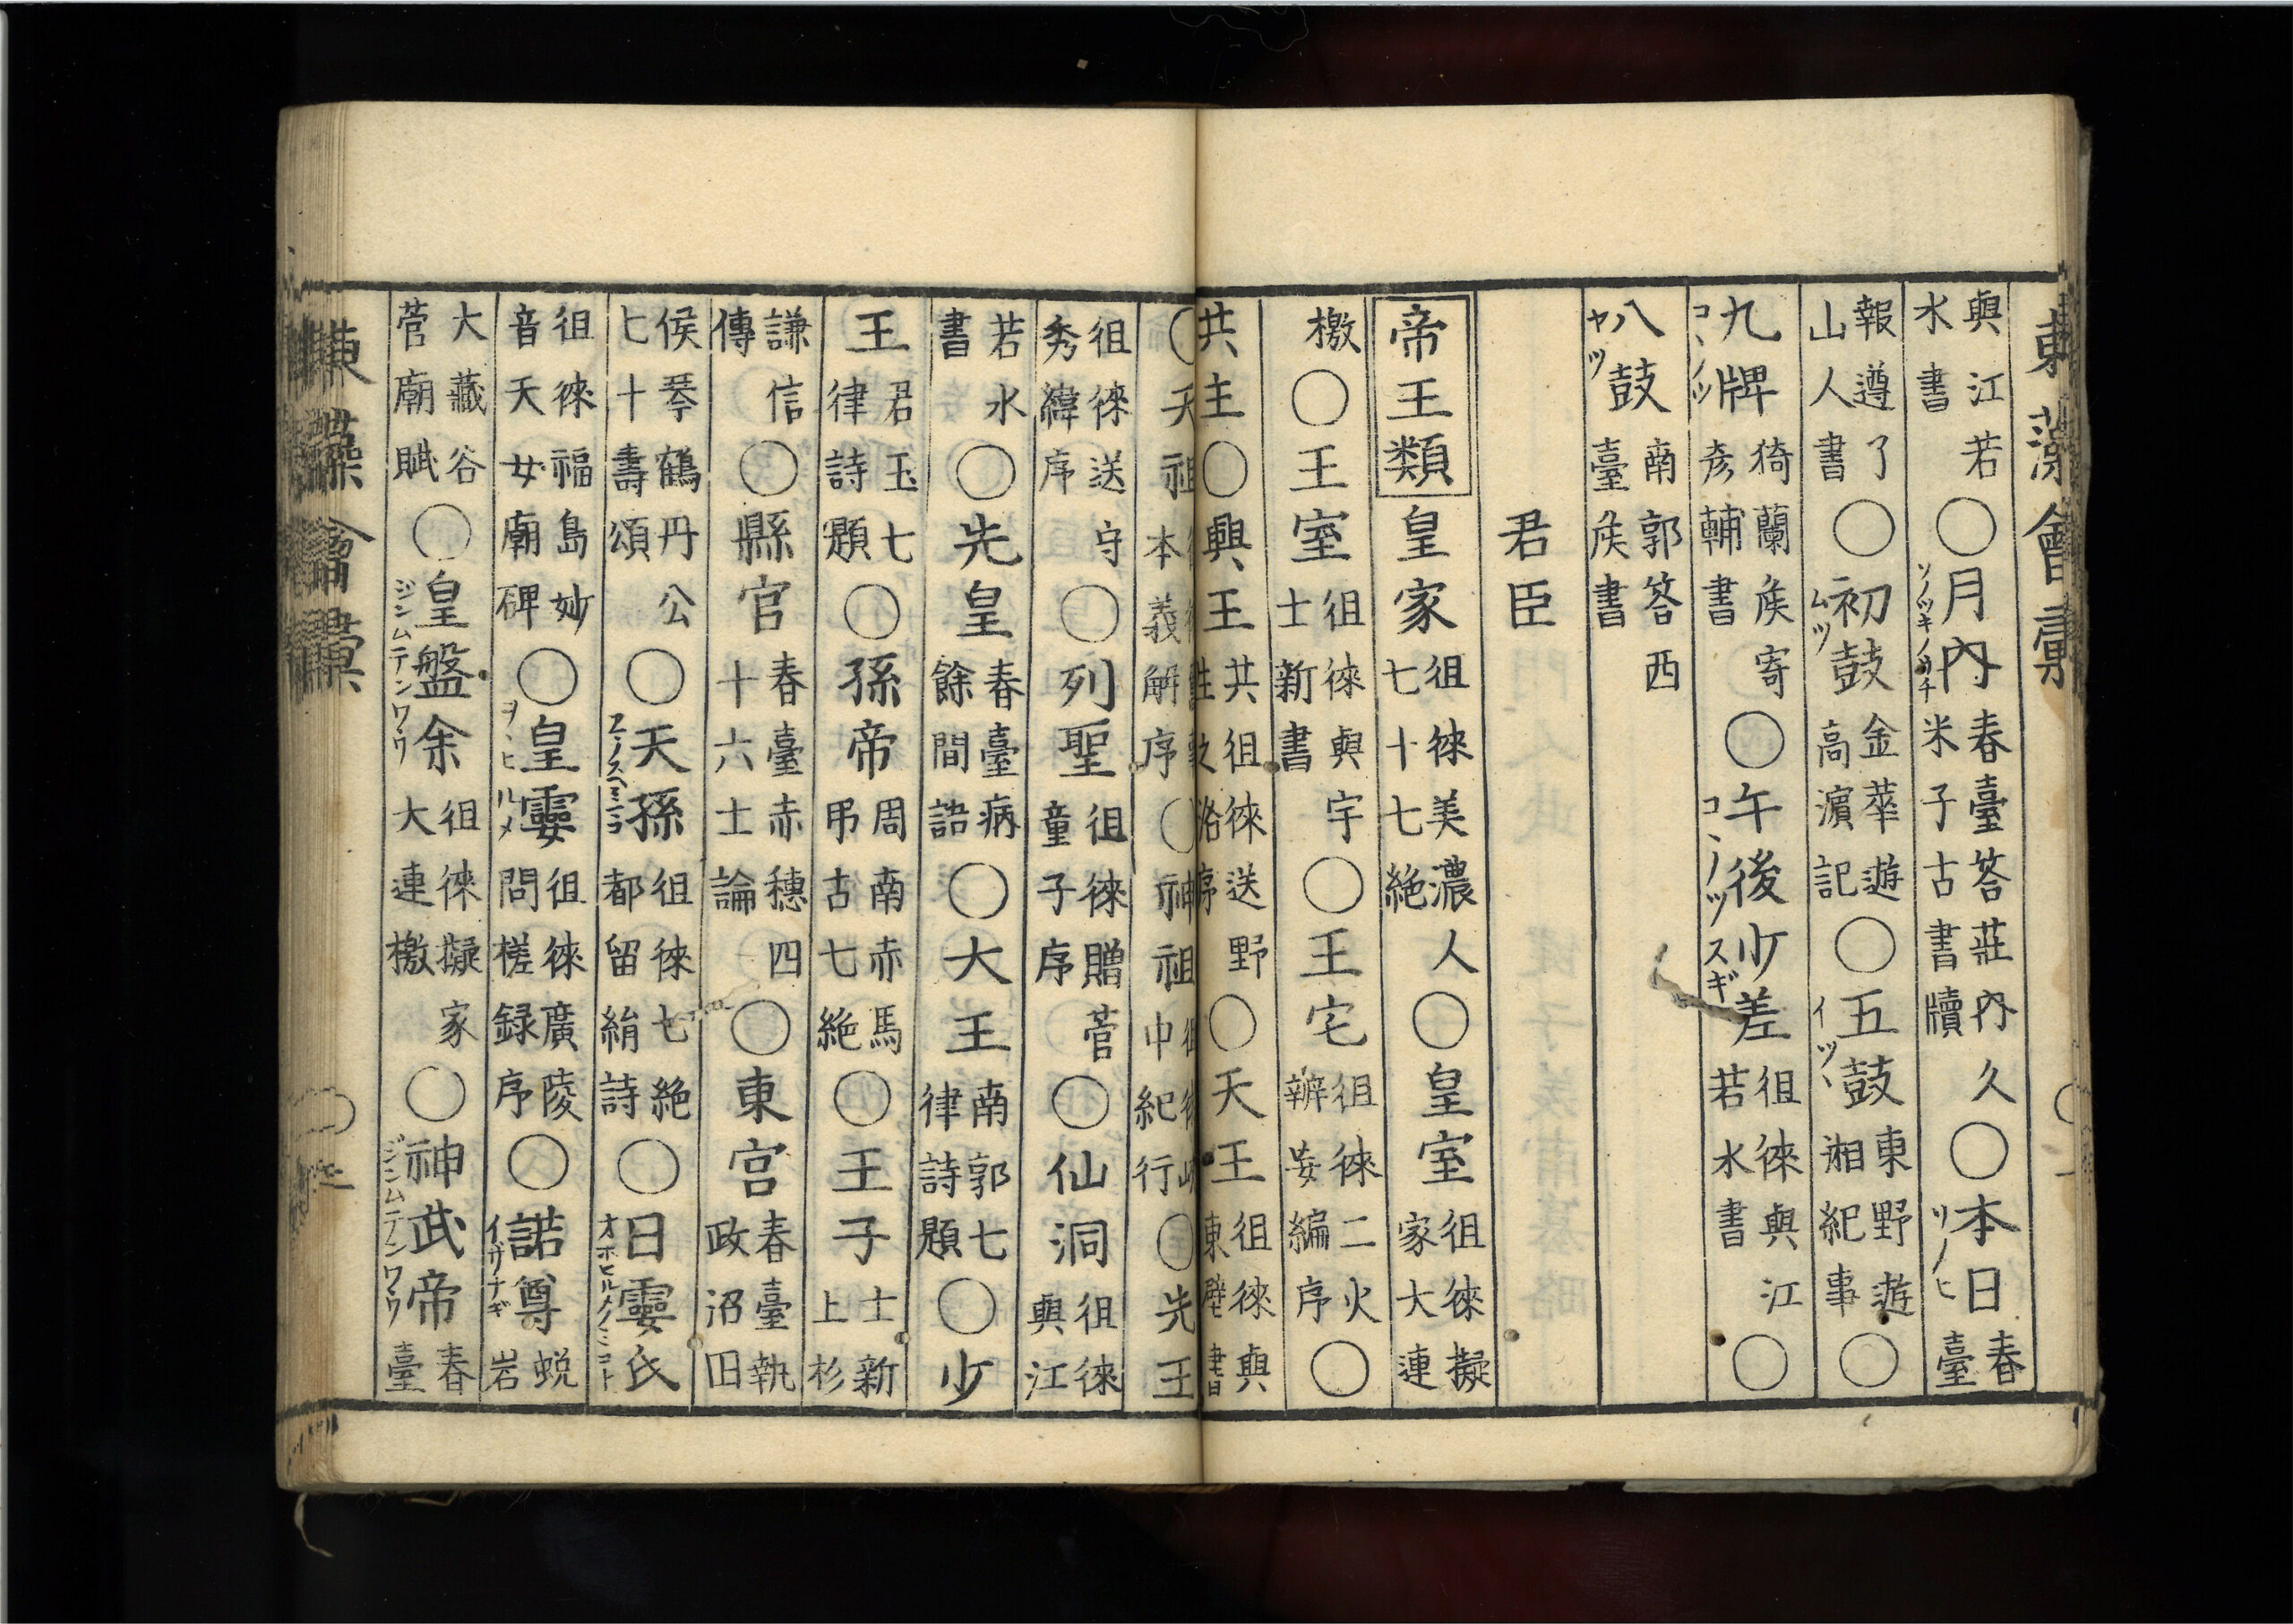 東藻會彙
與江若水書○月内ソノツキノウチ春臺答莊内久米子古書牘○本日ソノヒ春臺
報遵了山人書○初鼓ムツ金華遊高濵記○五鼓イツヽ東野遊湘紀事○
九牌コヽノツ猗蘭侯寄彦輔書○午後少差コヽノツスギ徂徠與江若水書○
八鼓ヤツ南郭答西臺侯書
君臣
帝王類皇家徂徠美濃人七十七絶○皇室徂徠擬家大連
檄○王室徂徠與宇士新書○王宅徂徠二火辧妄編序○
共主○興王共徂徠送野之洛序○天王徂徠與東壁書
○天祖本義解序○神祖徂徠峡中紀行○先王
徂徠送守秀緯序○列聖徂徠贈菅童子序○仙洞徂徠與江
若水書○先皇春臺病餘間語○大王南郭七律詩題○少
王君玉七律詩題○孫帝周南赤馬弔古七絶○王子士新上杉
謙信傳○縣官春臺赤穗四十六士論○東宮春臺執政沼田
侯琴鶴丹公七十壽頌○天孫徂徠七絶都留絹詩○日孁氏オホヒルメノミコト
徂徠福島妙音天女廟碑○皇孁ヲヽヒルメ徂徠廣陵問槎録序○諾尊イザナギ蛻岩
大藏谷菅廟賦○皇盤余ジンムテンワウ徂徠擬家大連檄○神武帝ジンムテンワウ春臺
東藻會彙